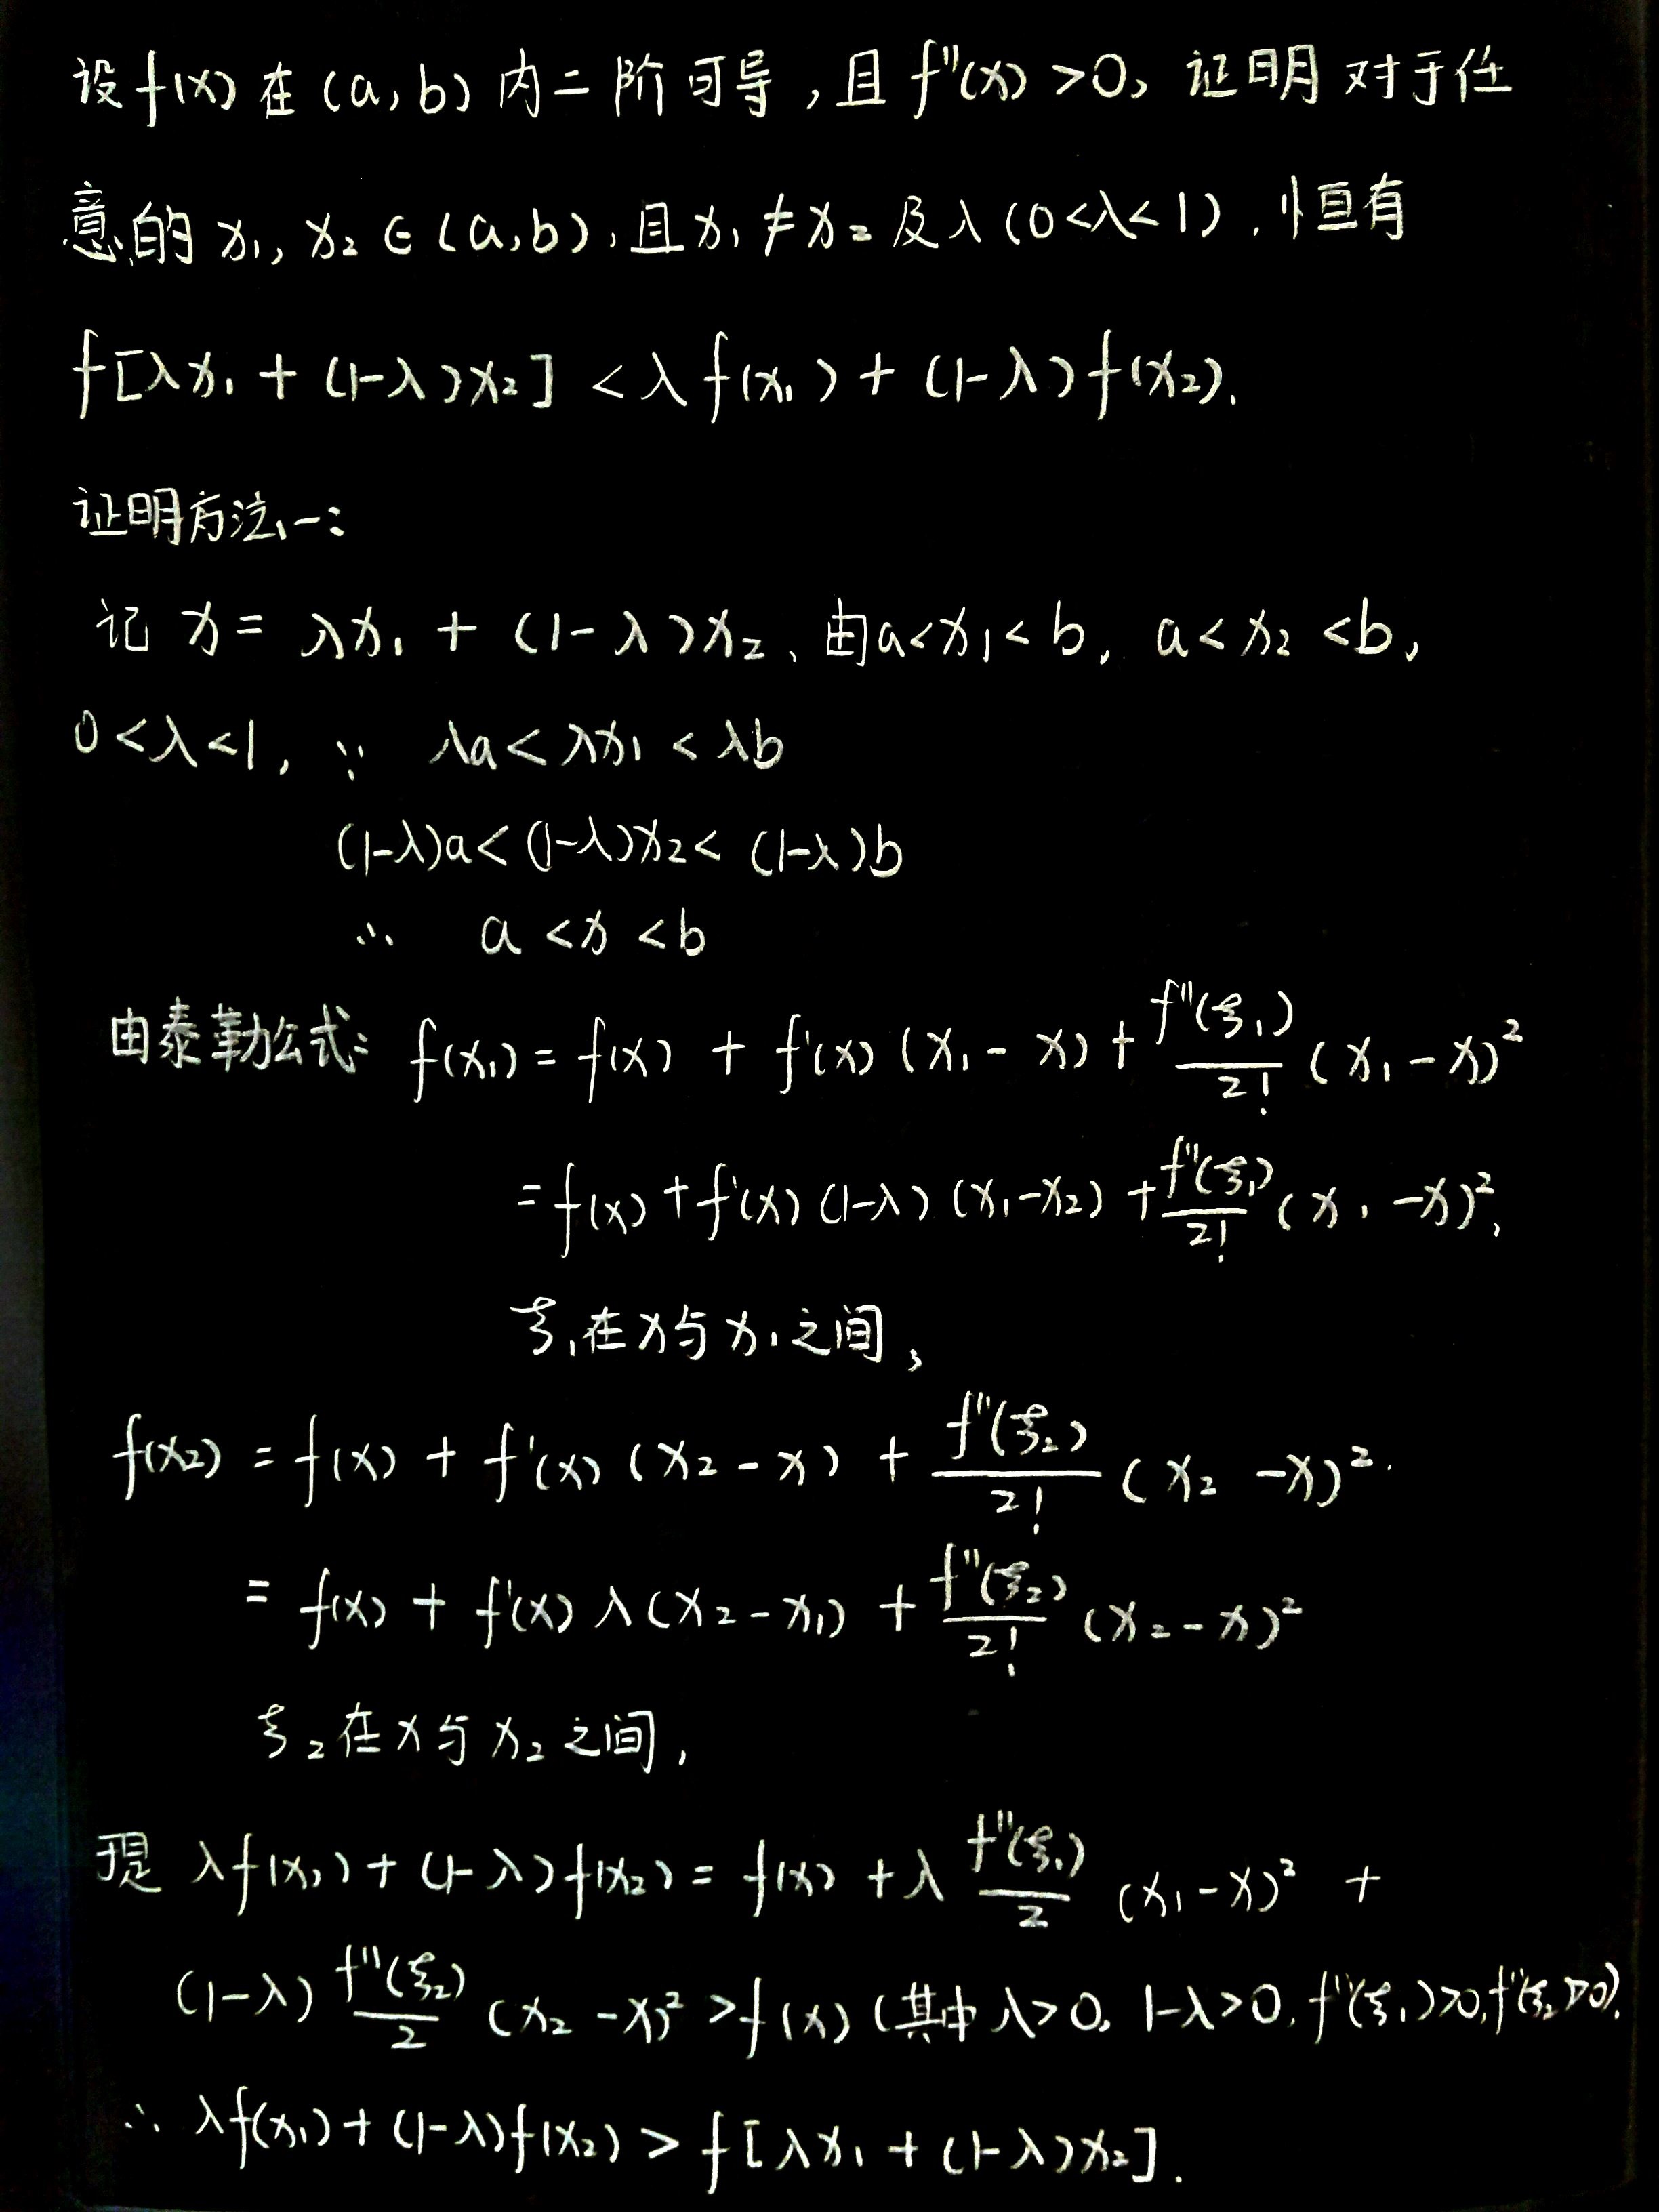 设f(x)在(a,b)内二阶可导,且f''(x)>0,证明对于任
意的x₁,x₂∈(a,b),且x₁≠x₂及λ(0<λ<1),恒有
f[λx₁+(1-λ)x₂]<λf(x₁)+(1-λ)f(x₂).
证明方法一:
记 x=λx₁+(1-λ)x₂、由a<x₁<b, a<x₂<b,
0<λ<1, ∵ λa<λx₁<λb
(1-λ)a<(1-λ)x₂<(1-λ)b
∴ a<x<b
由泰勒公式: f(x₁)=f(x)+f'(x)(x₁-x)+f''(ξ₁)/2!(x₁-x)²
=f(x)+f'(x)(1-λ)(x₁-x₂)+f''(ξ₁)/2!(x₁-x)²,
ξ₁在x与x₁之间,
f(x₂)=f(x)+f'(x)(x₂-x)+f''(ξ₂)/2!(x₂-x)².
=f(x)+f'(x)λ(x₂-x₁)+f''(ξ₂)/2!(x₂-x)²
ξ₂在x与x₂之间,
λf(x₁)+(1-λ)f(x₂)=f(x)+λf''(ξ₁)/2(x₁-x)²+
(1-λ)f''(ξ₂)/2(x₂-x)²>f(x)(其中λ>0, 1-λ>0, f''(ξ₁)>0,f''(ξ₂>0).
∴ λf(x₁)+(1-λ)f(x₂)>f[λx₁+(1-λ)x₂].